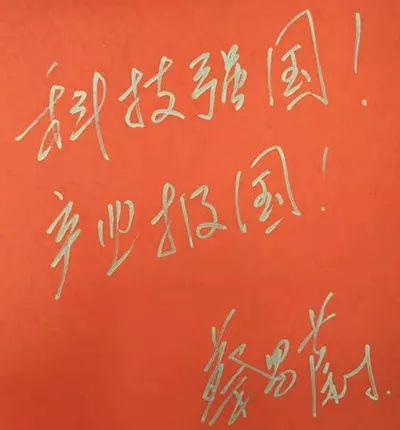 科技强国！
产业报国！
蔡